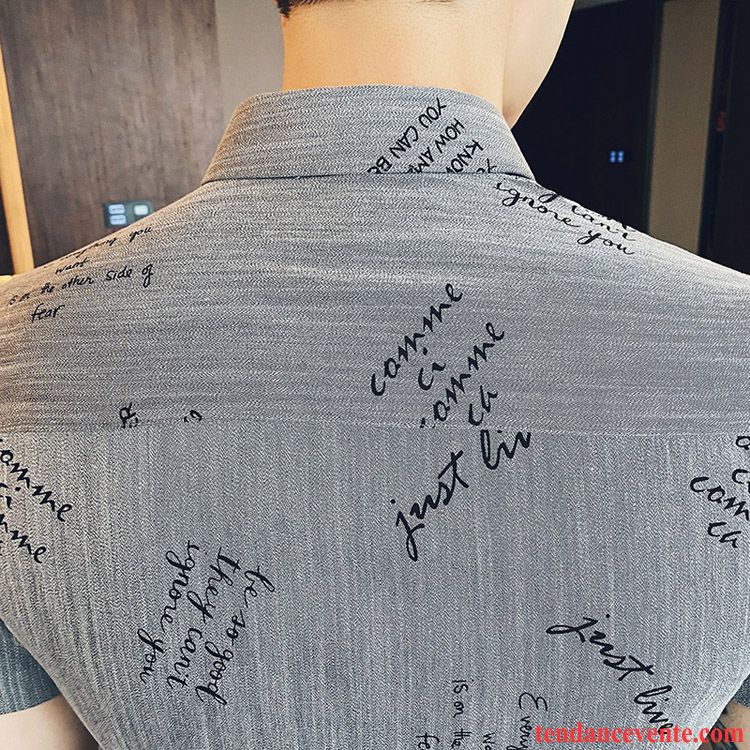 YOU CAN BE
HOW AM
KNOW
ignore you
you
want
is on the other side of
fear
comme
ci
comme
ca
just liv
omme
ci
omme
com
ca
be so good
they can't
ignore you
just live
Every
is on the
fe
tendancevente.com